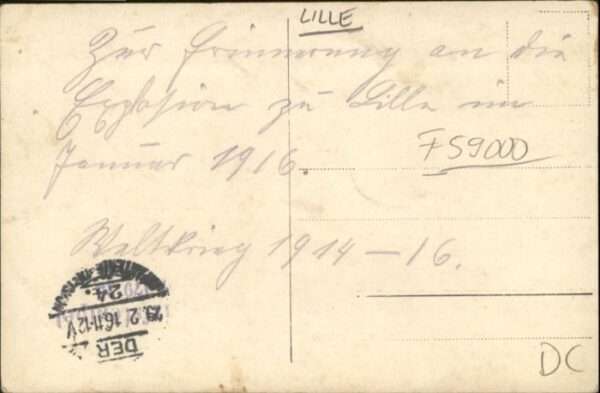 LILLE
Zur Erinnerung an die
Explosion zu Lille im
Januar 1916.
F59000
Weltkrieg 1914-16.
24.
2 16.11-12V
DER
DC